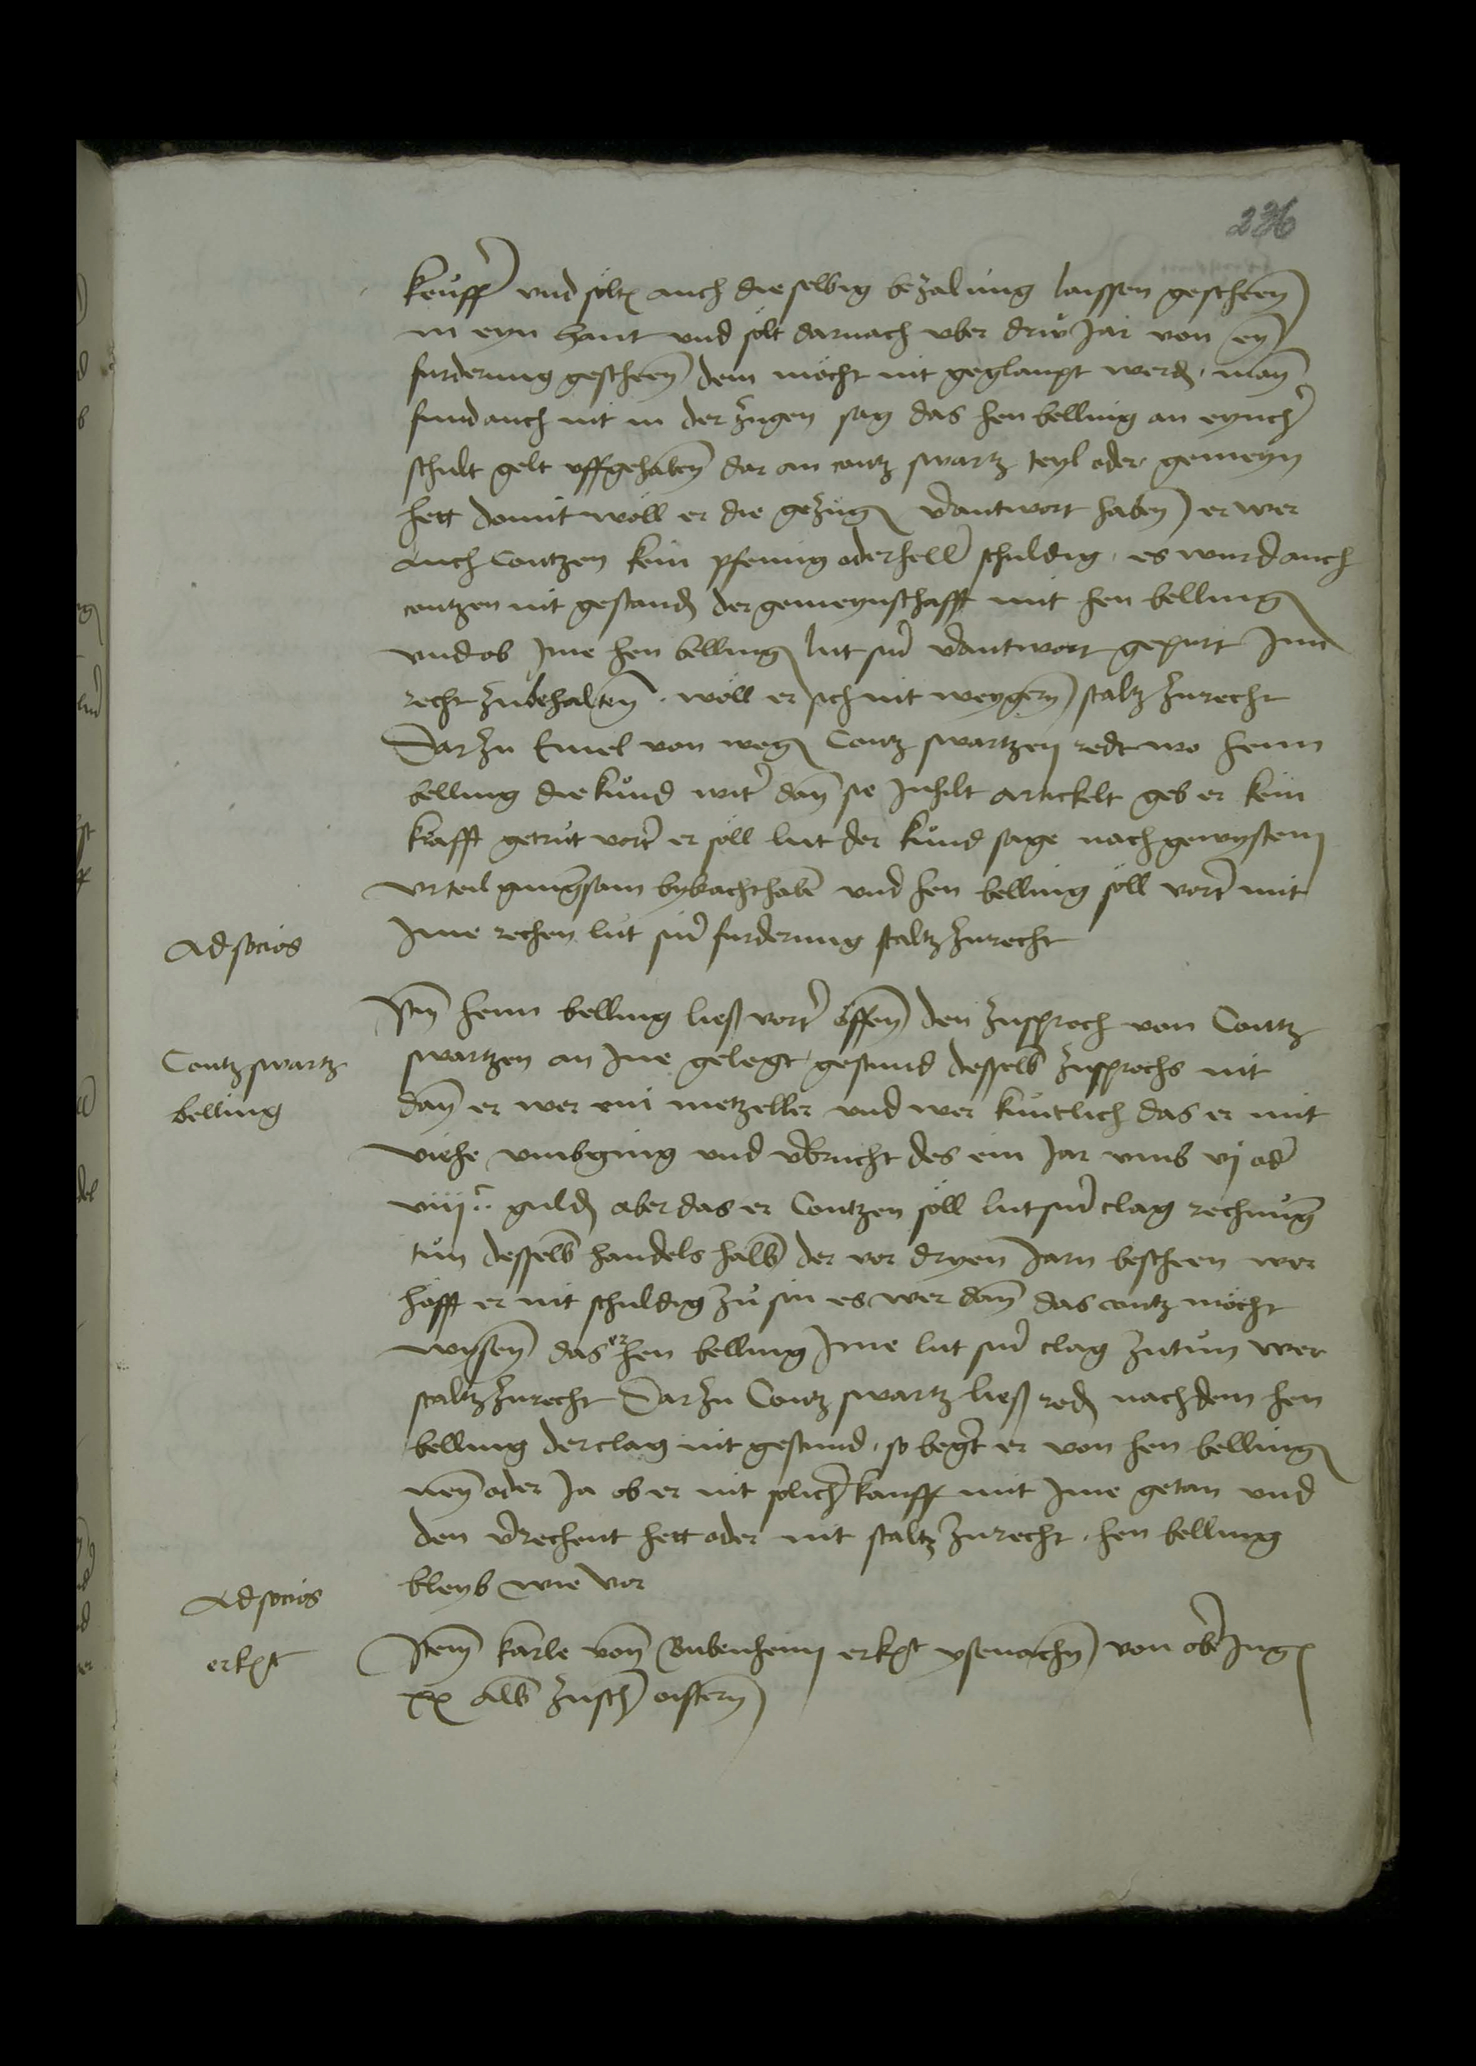 236
keuff(er) vnd solt auch die selbig bezalung laissen gescheen
in eyn hant vnd solt darnach vber driw Jar von ey(n)
furderung gescheen dem mocht nit geglaupt werd(en) man
fund auch nit in der zugen sag das hen belling an eynich(er)
schult gelt vffgehaben dar an contz swartz teyl oder gemeyn
hett domit woll er die gezug(en) v(er)antwort haben er wer
auch Contzen kein pfennig oder hell(er) schuldig es wurd auch
contzen nit gestand(en) der gemeynschafft mit hen belling
vnd ob Jme hen belling lut sin(er) v(er)antwort gepurt Jnn
recht zubehalten woll er sich nit weygern staltz zurecht
Darzu Emel von weg(en) Contz swartzen redt wo henn
belling die kund wit(er) dan sie Jnhilt artickelt geb er kein
krafft getrut vort(er) er soll lut der kund sage nach gewystem
vrteil gnugsam bybracht habe(n) vnd hen belling soll vort(er) mit
Jme rechen lut sin(er) furderung staltz zurecht
Ad socios
It(em) henn belling ließ vort(er) offen den zusproch von Contz
Contz swartz
belling
swartzen an Jne gelegt gestund desselb(en) zusprochs nit
dan er wer ein metzeller vnd wer kuntlich das er mit
viehe vmbging vnd v(er)brucht des ein Jar vmb vj od(er)
viijc guld(en) aber das er Contzen soll lut sin(er) clag rechnu(n)g
tun desselb(en) handels halb(en) der vor dryen Jarn bescheen wer
hofft er nit schuldig zu sin es wer dan das contz mocht
wysen das er hen belling Jme lut sin(er) clag zutun wer
staltz zurecht Darzu Contz swartz ließ red(en) nach dem hen
belling der clag nit gestund so beg(er)t er von hen belling
neyn oder Ja ob er nit solich(en) kauff mit Jme getan vnd
den v(er)rechent hett oder nit staltz zurecht hen belling
bleyb wie vor
Ad socios
erk(enn)t
Item karle von Bubenheim erk(enn)t ysenachen von ob(er) Jng(elnheim)
xx alb(us) zusch(en) oistern